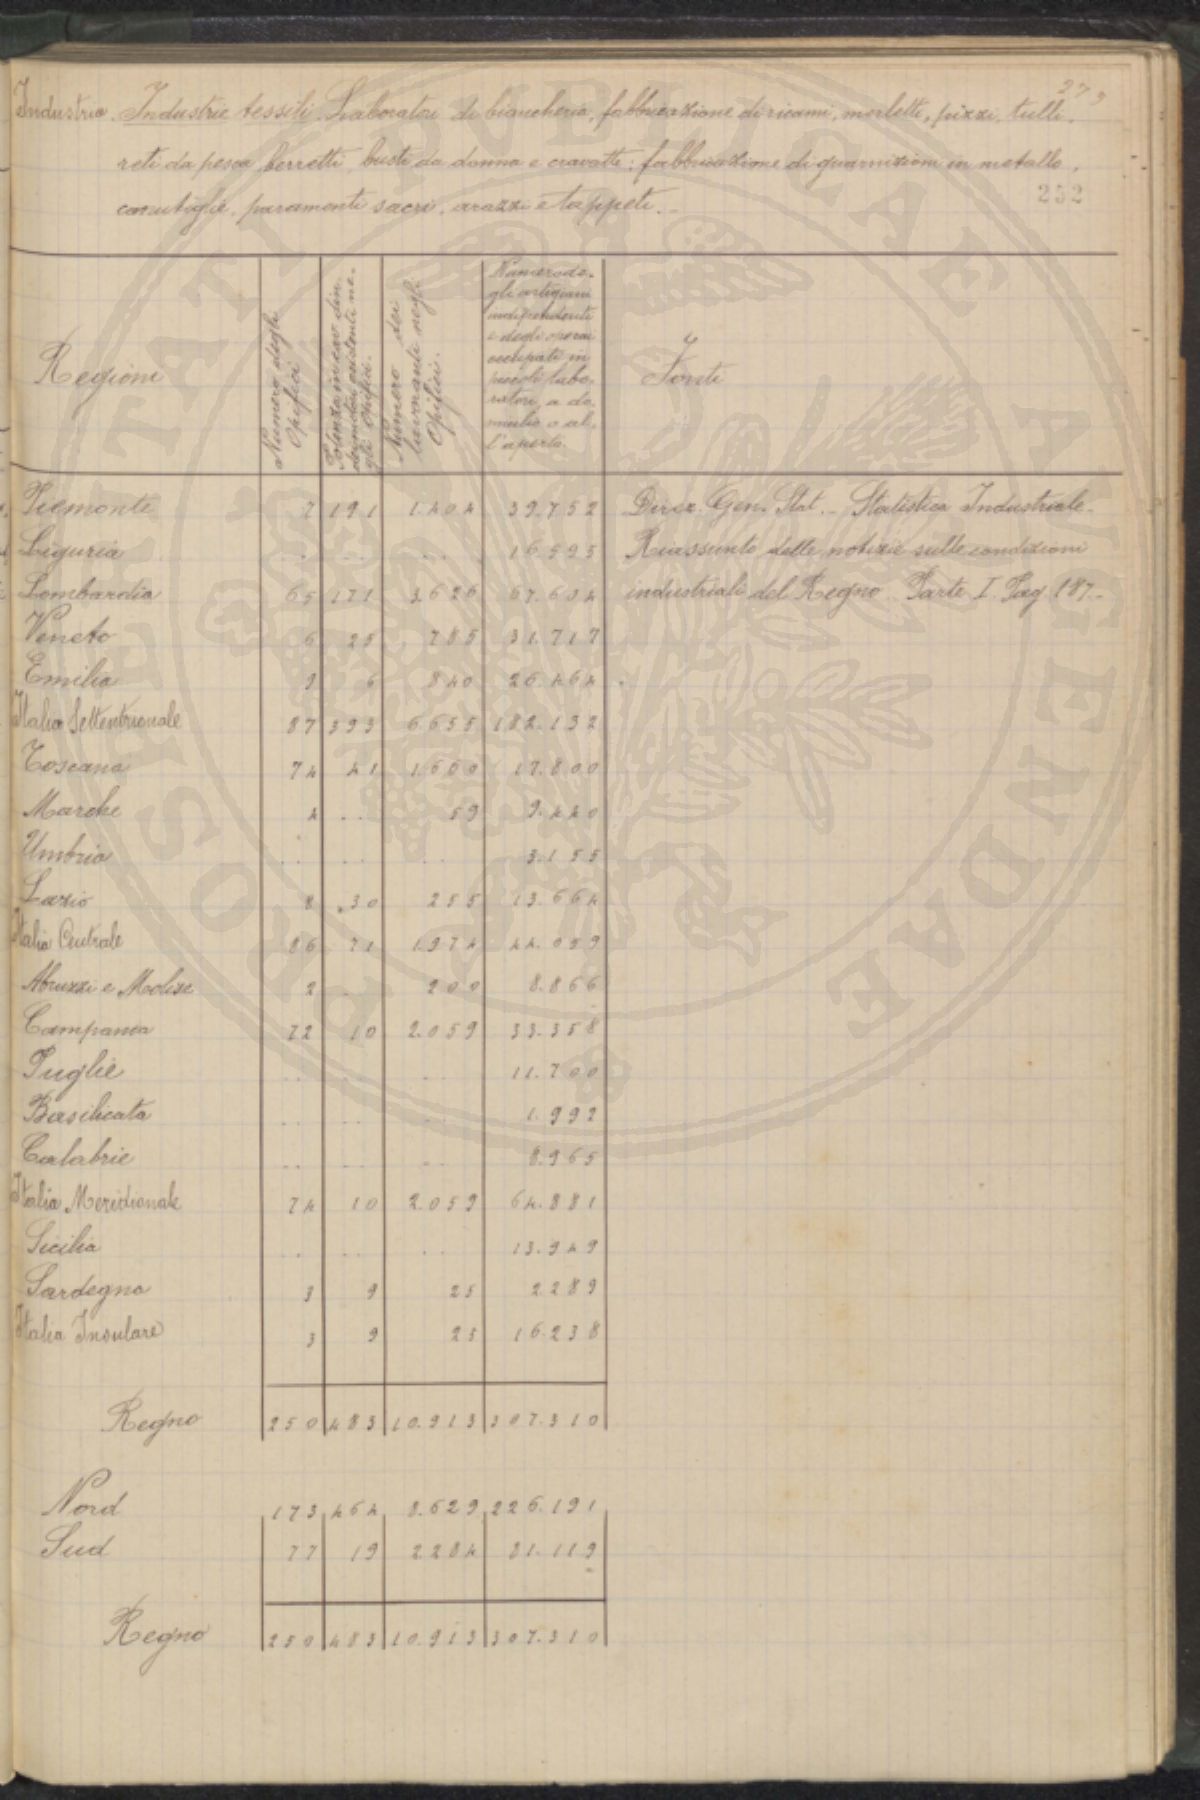 279
Industria. Industrie tessili. Laboratori di biancheria, fabbricazione di ricami, merletti, pizzi, tulli,
reti da pesca, berretti, busti da donna e cravatte; fabbricazione di guarnizioni in metallo,
canutiglie, paramenti sacri, arazzi e tappeti.
252
Regioni
Numero degli Opifici
Potenza in cav. din. dei motori esistenti negli Opifici.
Numero dei lavoranti negli Opifici.
Numero degli artigiani indipendenti e degli operai occupati in piccoli laboratori, a domicilio o all'aperto.
Fonti
Piemonte 7 191 1.404 39.752 Direz. Gen. Stat. - Statistica Industriale -
Liguria .. .. .. 16.595 Riassunto delle notizie sulle condizioni
Lombardia 65 171 3626 67.604 industriali del Regno. Parte I. Pag. 187.-
Veneto 6 25 785 31.717
Emilia 9 6 840 26.464
Italia Settentrionale 87 393 6655 182.132
Toscana 74 41 1.660 17.800
Marche 4 .. 59 9.440
Umbria .. .. .. 3.155
Lazio 8 30 255 13.664
Italia Centrale 86 71 1.974 44.059
Abruzzi e Molise 2 .. 200 8.866
Campania 72 10 2.059 33.358
Puglie .. .. .. 11.700
Basilicata .. .. .. 1.992
Calabrie .. .. .. 8.965
Italia Meridionale 74 10 2.059 64.881
Sicilia .. .. .. 13.949
Sardegna 3 9 25 2289
Italia Insulare 3 9 25 16.238
Regno 250 483 10.913 307.310
Nord 173 464 8.629 226.191
Sud 77 19 2284 81.119
Regno 250 483 10.913 307.310